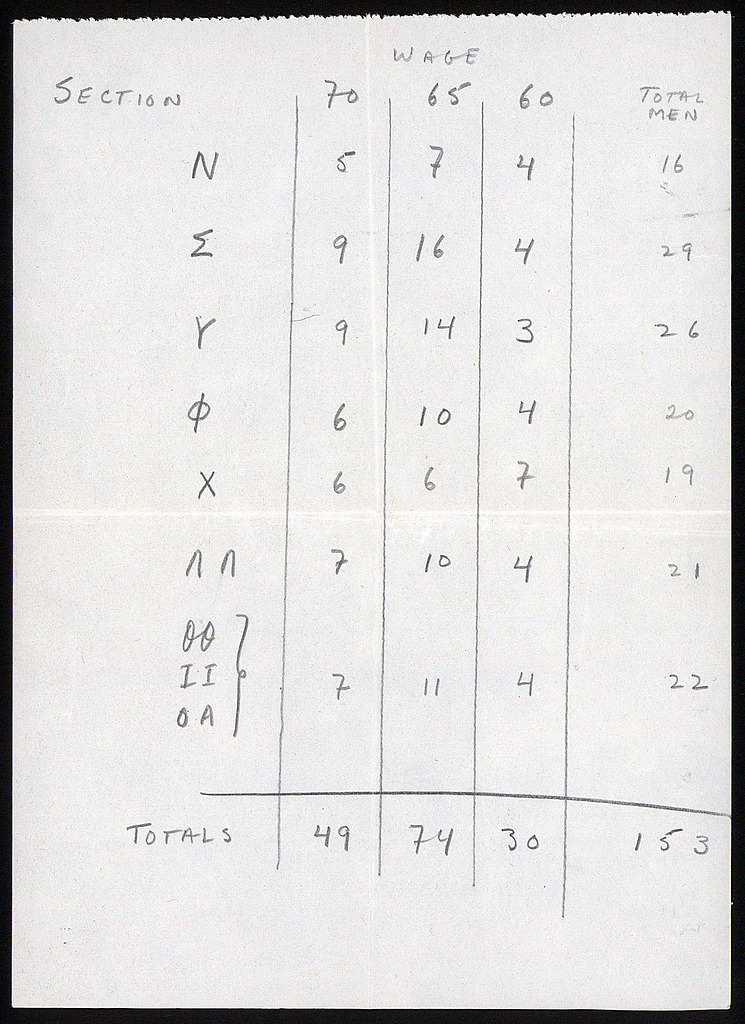 WAGE
SECTION 70 65 60 TOTAL MEN
N 5 7 4 16
Σ 9 16 4 29
Υ 9 14 3 26
Φ 6 10 4 20
X 6 6 7 19
ΛΛ 7 10 4 21
θθ
II 7 11 4 22
OA
TOTALS 49 74 30 153